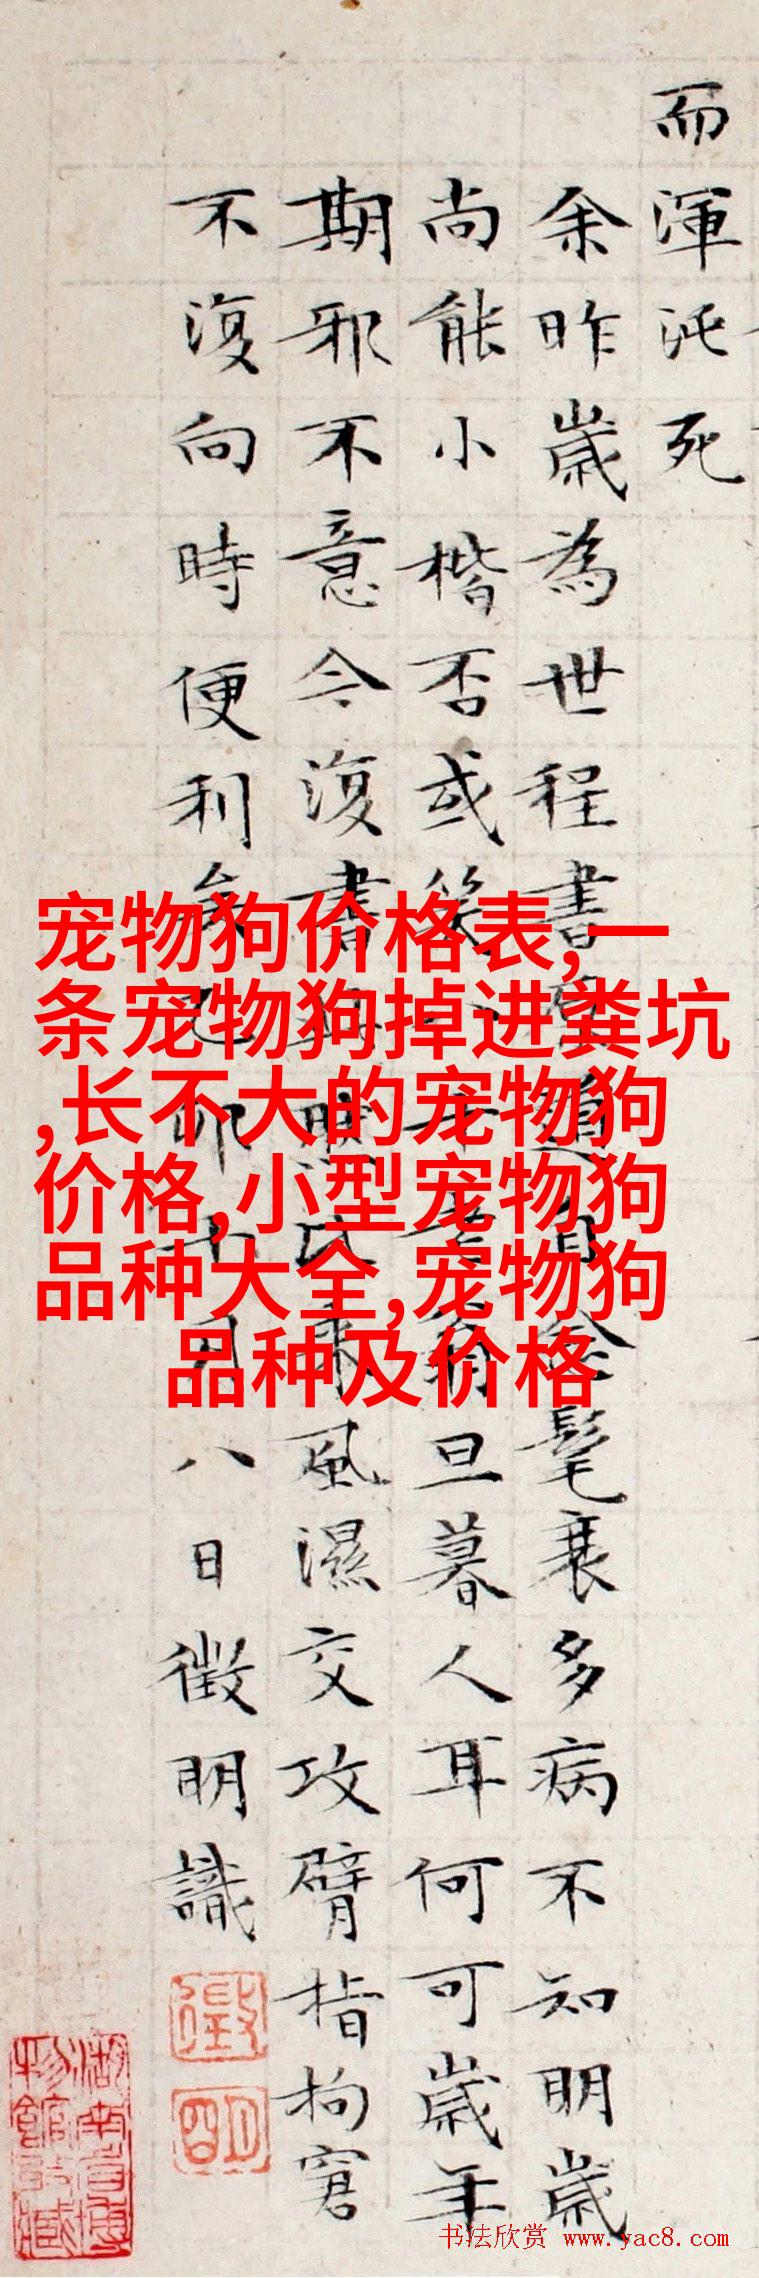 而渾沌死
余昨歲為世程書道髦衰多病不知明歲
尚能小楷否或笑八十老翁旦暮人耳何可歲年
期邪不意今復書然比來風濕交攻臂指拘窘
不復向時便利矣己卯十月八日徵明識
徵
明
湖南省博
物館收藏
宠物狗价格表,一
条宠物狗掉进粪坑
,长不大的宠物狗
价格,小型宠物狗
品种大全,宠物狗
品种及价格
书法欣赏 www.yac8.com